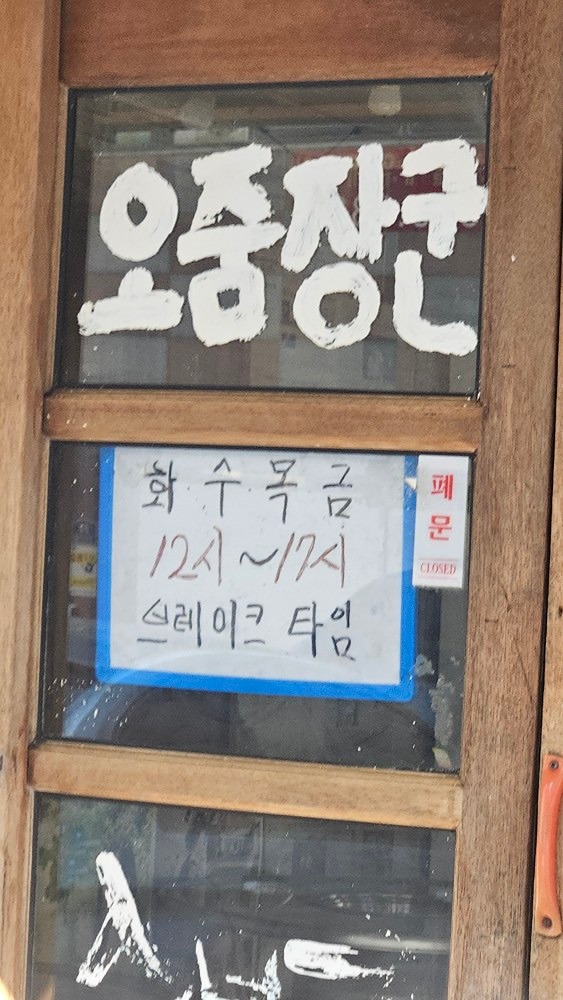 오줌장군
화 수 목 금
12시~17시
브레이크 타임
폐
문
CLOSED